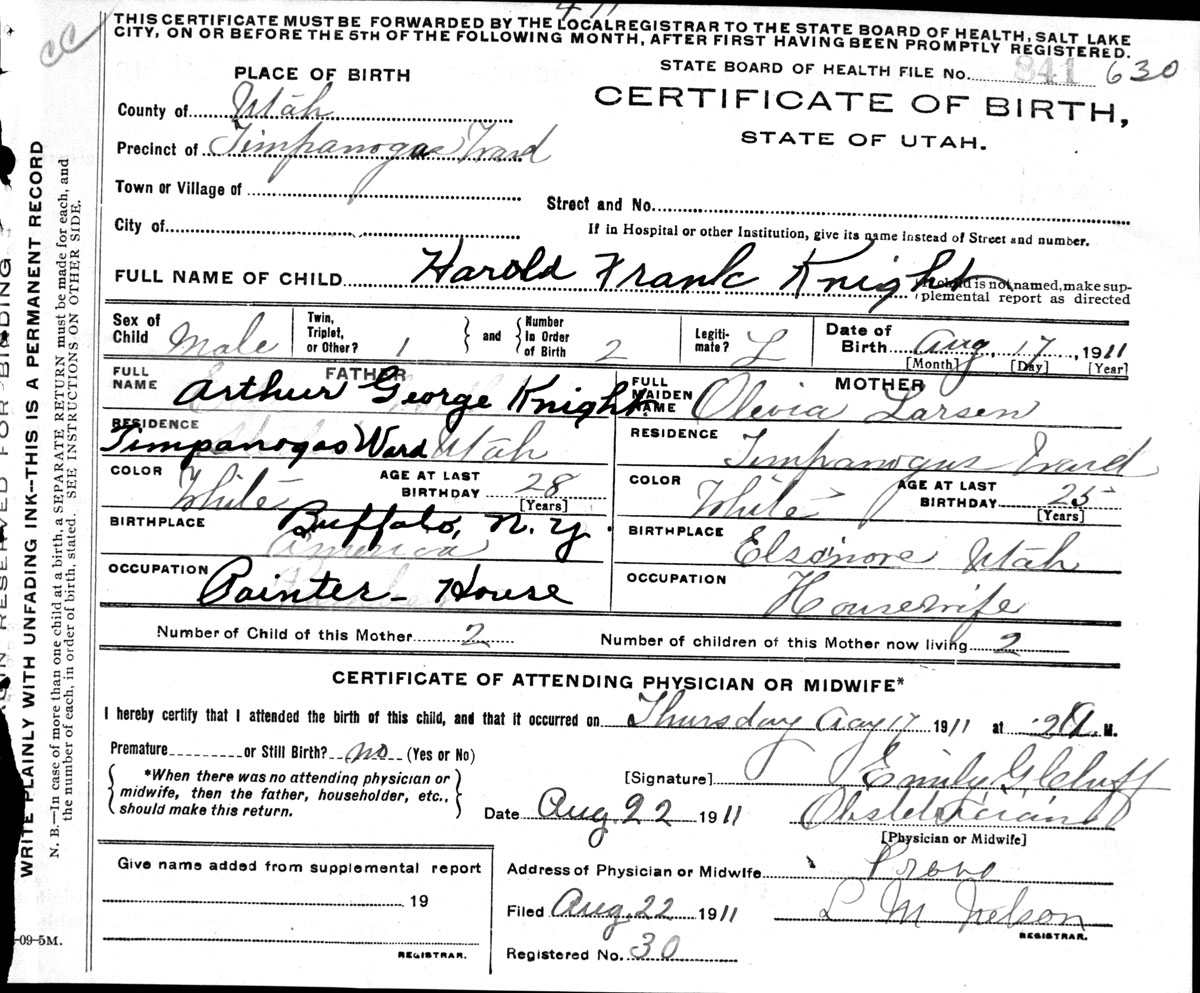 411
THIS CERTIFICATE MUST BE FORWARDED BY THE LOCAL REGISTRAR TO THE STATE BOARD OF HEALTH, SALT LAKE
CITY, ON OR BEFORE THE 5TH OF THE FOLLOWING MONTH, AFTER FIRST HAVING BEEN PROMPTLY REGISTERED.
STATE BOARD OF HEALTH FILE No. 841 630
CERTIFICATE OF BIRTH,
STATE OF UTAH.
PLACE OF BIRTH
County of Utah
Precinct of Timpanogas Ward
Town or Village of
City of
Street and No.
If in Hospital or other Institution, give its name instead of Street and number.
FULL NAME OF CHILD Harold Frank Knight
If child is not named, make sup-
plemental report as directed
Sex of Child Male
Twin, Triplet, or Other? 1 and Number In Order of Birth 2
Legiti-mate? L
Date of Birth Aug. 17, 1911
[Month] [Day] [Year]
FATHER
FULL NAME Arthur George Knight
RESIDENCE Timpanogas Ward Utah
COLOR White AGE AT LAST BIRTHDAY 28
[Years]
BIRTHPLACE Buffalo, N.Y.
America
OCCUPATION Painter - House
MOTHER
FULL MAIDEN NAME Olivia Larsen
RESIDENCE Timpanogus Ward
COLOR White AGE AT LAST BIRTHDAY 25
[Years]
BIRTHPLACE Elsinore Utah
OCCUPATION Housewife
Number of Child of this Mother 2 Number of children of this Mother now living 2
CERTIFICATE OF ATTENDING PHYSICIAN OR MIDWIFE*
I hereby certify that I attended the birth of this child, and that it occurred on Thursday Aug 17 1911 at 2 A. M.
Premature or Still Birth? no (Yes or No)
*When there was no attending physician or
midwife, then the father, householder, etc.,
should make this return.
[Signature] Emily G Cluff
Date Aug 22 1911 Obstetrician
[Physician or Midwife]
Give name added from supplemental report
19
REGISTRAR.
Address of Physician or Midwife Provo
Filed Aug. 22 1911 L M Nelson
REGISTRAR.
Registered No. 30
-09-5M.
WRITE PLAINLY WITH UNFADING INK—THIS IS A PERMANENT RECORD
N. B.—In case of more than one child at a birth, a SEPARATE RETURN must be made for each, and
the number of each, in order of birth, stated. SEE INSTRUCTIONS ON OTHER SIDE.
RESERVED FOR BINDING